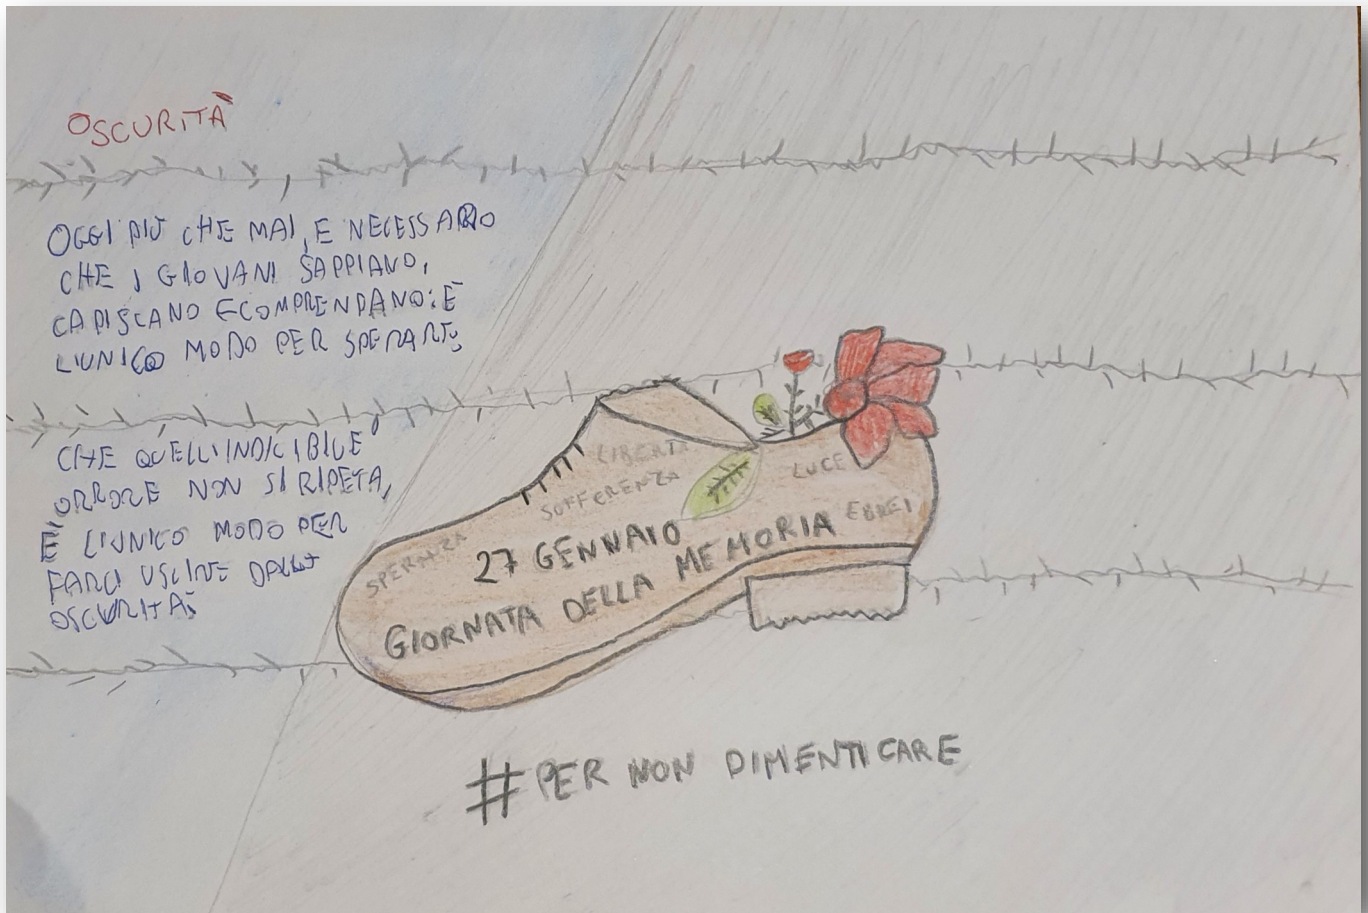 OSCURITÀ
OGGI PIÙ CHE MAI, E NECESSARIO
CHE I GIOVANI SAPPIANO,
CAPISCANO E COMPRENDANO: È
L'UNICO MODO PER SPERARE,
CHE QUELL'INDICIBILE
ORRORE NON SI RIPETA,
È L'UNICO MODO PER
FARCI USCIRE DALL'
OSCURITÀ.
LIBERTÀ
SOFFERENZA
LUCE
EBREI
SPERANZA
27 GENNAIO
GIORNATA DELLA MEMORIA
#PER NON DIMENTICARE